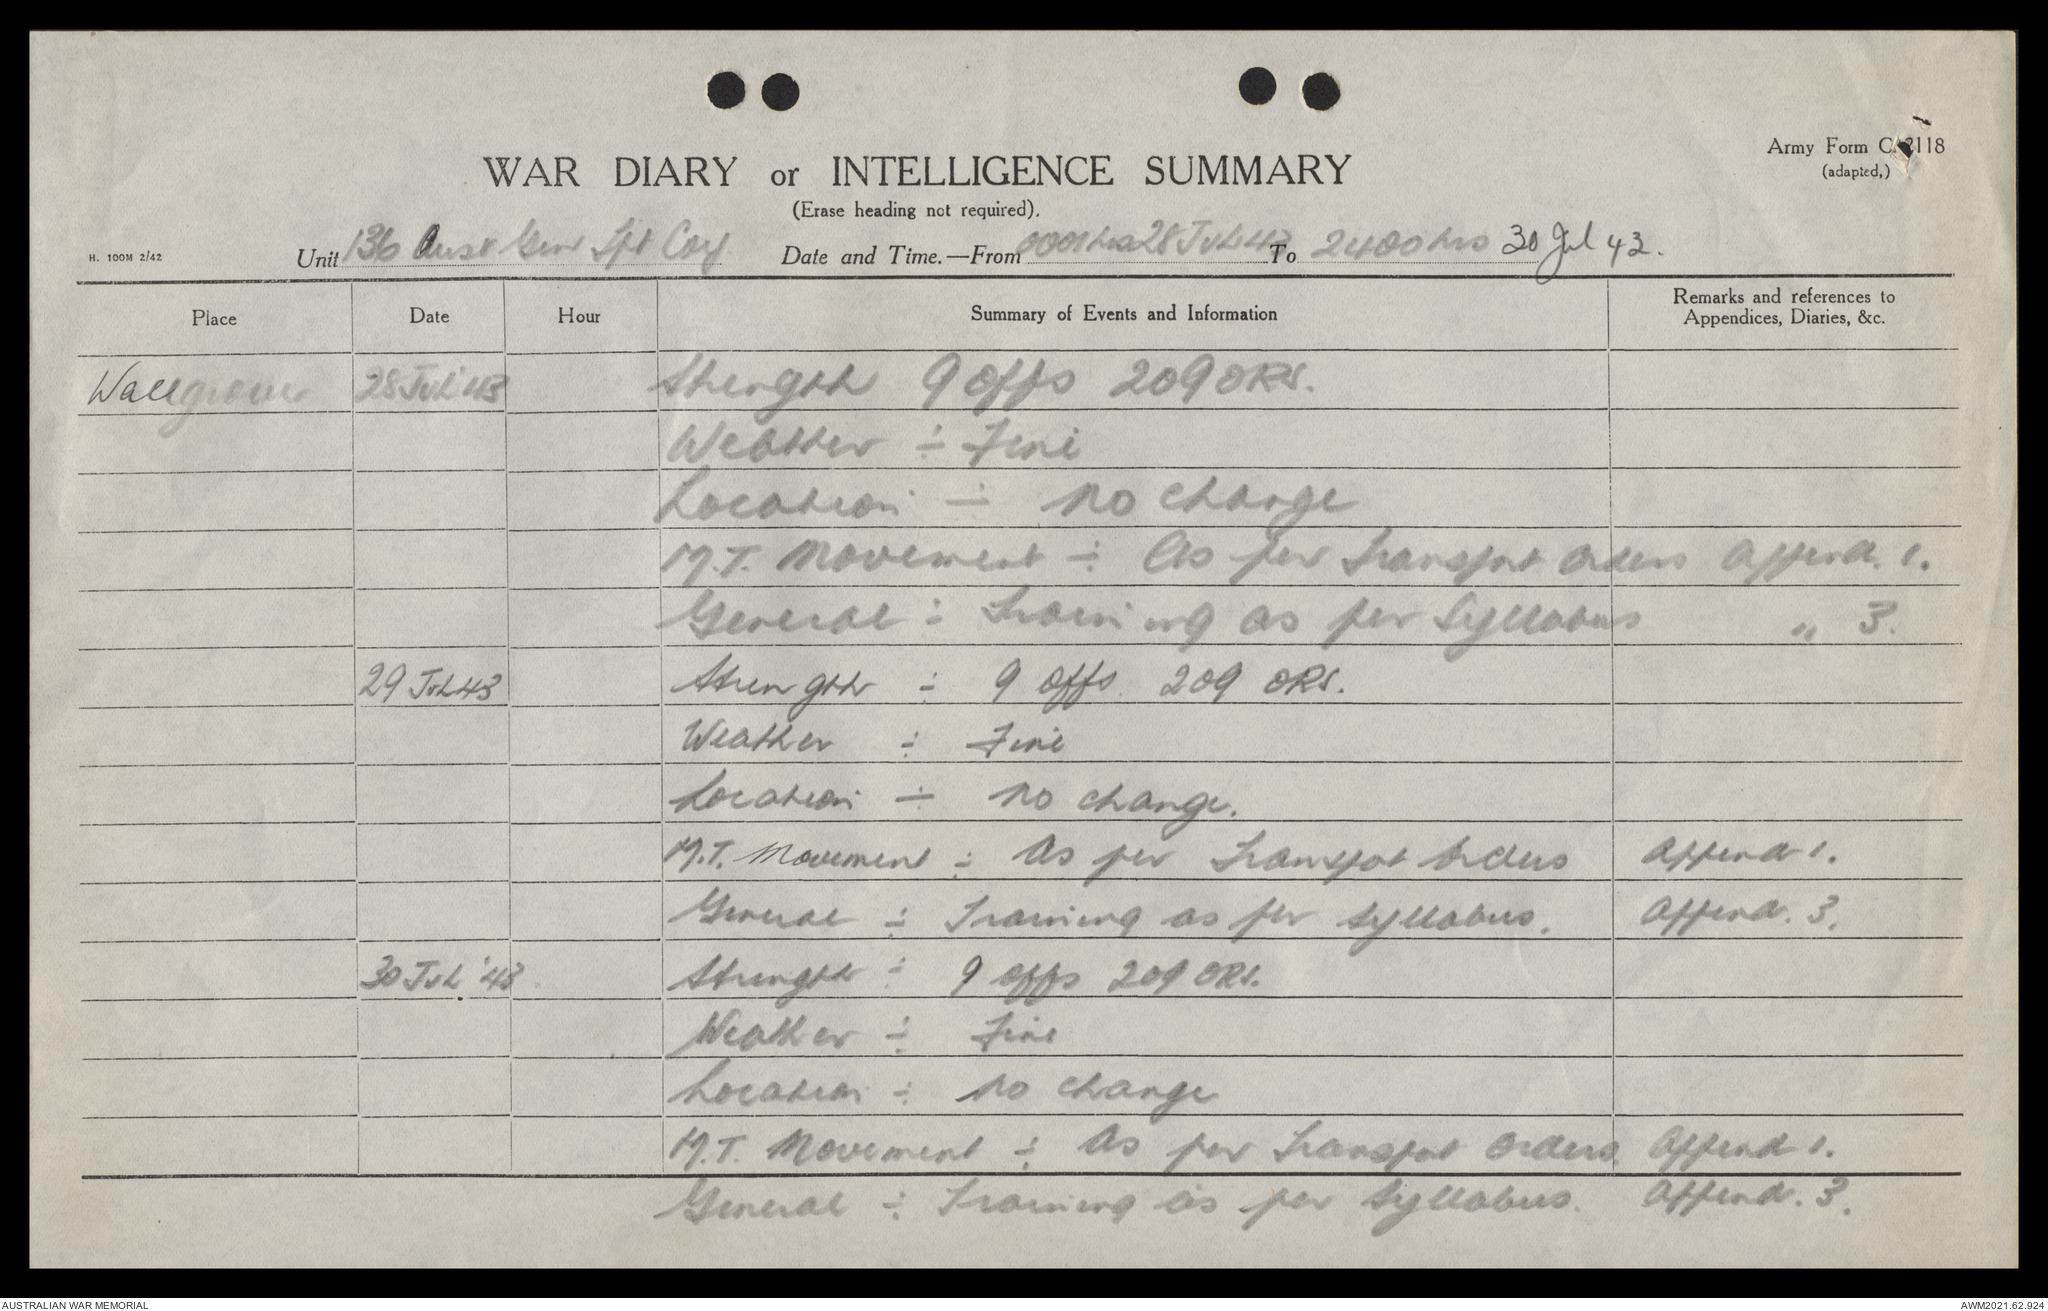 Army Form C.2118
(adapted,)
WAR DIARY or INTELLIGENCE SUMMARY
(Erase heading not required).
H. 100M 2/42
Unit 136 Aust Gen Tpt Coy Date and Time.—From 0001 hrs 28 Jul 43 To 2400 hrs 30 Jul 43.
Place Date Hour Summary of Events and Information Remarks and references to
Appendices, Diaries, &c.
Wallgrove 28 Jul '43 Strength 9 Offs 209 ORs.
Weather ÷ Fine
Location ÷ No change
M.T. Movement ÷ As per Transport Orders Append. 1.
General ÷ Training as per Syllabus " 3.
29 Jul 43 Strength ÷ 9 Offs 209 ORs.
Weather ÷ Fine
Location ÷ No change.
M.T. Movement ÷ As per Transport Orders Append 1.
General ÷ Training as per Syllabus. Append. 3.
30 Jul '43 Strength ÷ 9 Offs 209 ORs.
Weather ÷ Fine
Location ÷ No change
M.T. Movement ÷ As per Transport Orders Append 1.
General ÷ Training as per Syllabus. Append. 3.
AUSTRALIAN WAR MEMORIAL AWM2021.62.924